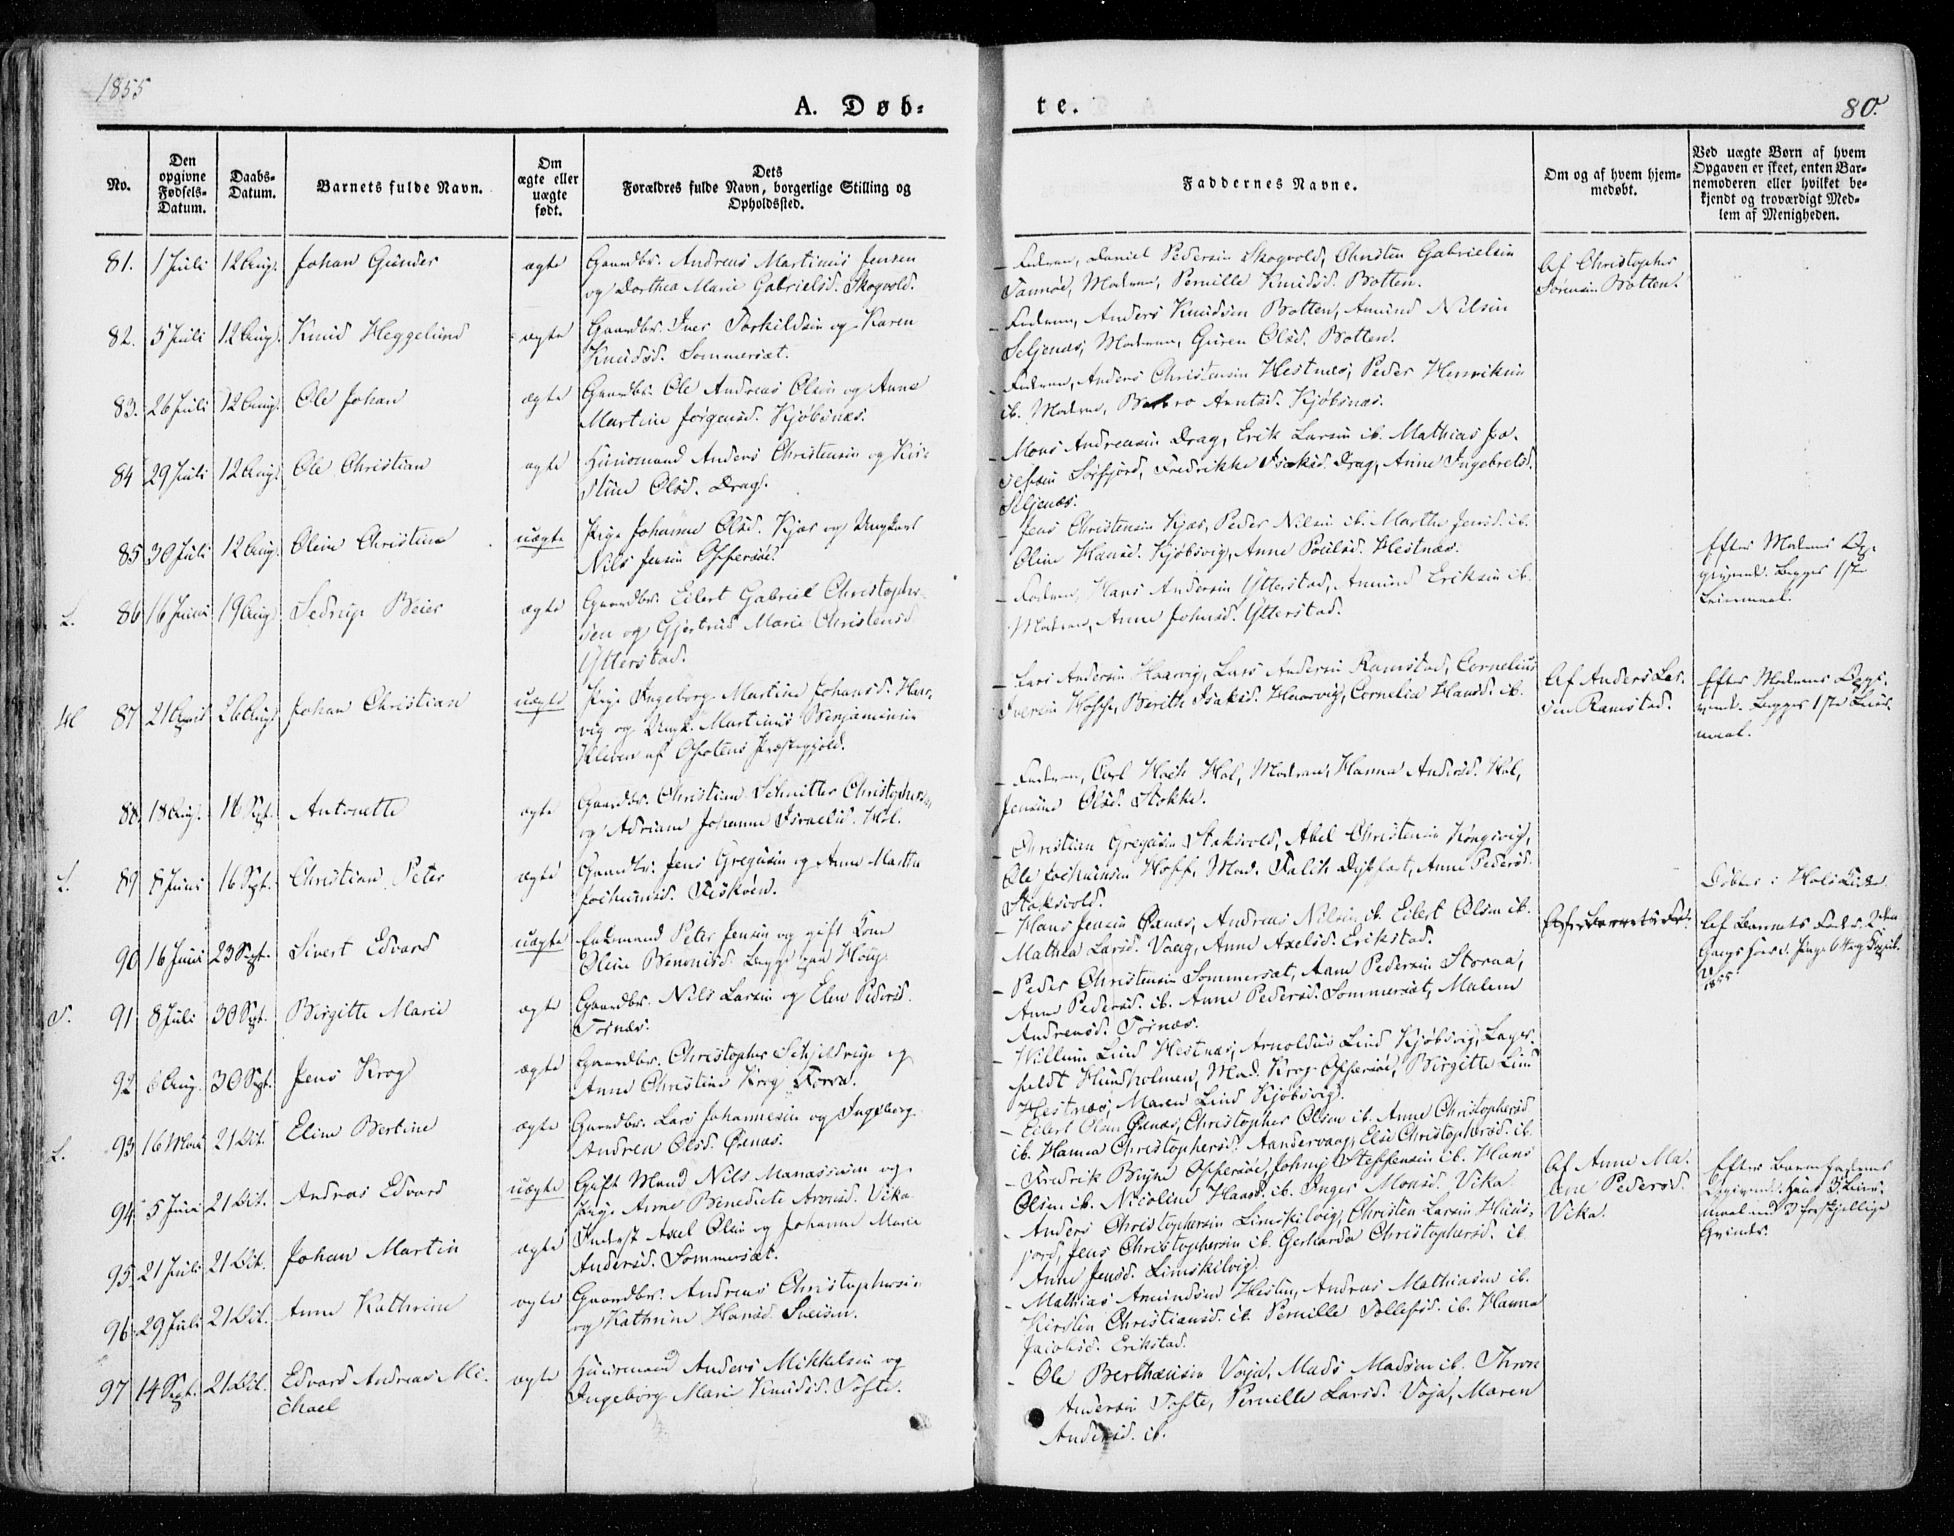 1855
A. Døb-
te.
80.
No.
Den opgivne Fødsels-Datum.
Daabs-Datum.
Barnets fulde Navn.
Om ægte eller uægte født.
Dets Forældres fulde Navn, borgerlige Stilling og Opholdssted.
Faddernes Navne.
Om og af hvem hjem-
medøbt.
Ved uægte Børn af hvem
Opgaven er skeet, enten Bar-
nemoderen eller hvilket be-
kjendt og troværdigt Med-
lem af Menigheden.
81. 1 Juli 12 Aug. Johan Gunder ægte Gaardbr. Andreas Martinus Jensen
og Dorthea Marie Gabrielsd. Skogvold.
Faderen, Daniel Pedersen Skogvold, Christen Gabrielsen
Tannøe, Moderen, Pernille Knudsd. Botten.
Af Christopher
Sørensen Botten.
82. 5 Juli 12 Aug. Knud Heggelund ægte Gaardbr. Iver Torkildsen og Karen
Knudsd. Sommersæt.
Faderen, Anders Knudsen Botten, Amund Nilsen
Seljenæs, Moderen, Guren Olsd. Botten.
83. 26 Juli 12 Aug. Ole Johan ægte Gaardbr. Ole Andreas Olsen og Anne
Martine Jørgensd. Kjøbsnæs.
Faderen, Anders Christensen Hestnæs, Peder Henriksen
ib. Moderen, Barbro Arntsd. Kjøbsnæs.
84 29 Juli 12 Aug. Ole Christian ægte Huusmand Anders Christensen og Kir-
stine Olsd. Drag.
Mons Andreasen Drag, Erik Larsen ib. Mathias Jo-
sefsen Sørfjord, Fredrikke Isaksd. Drag, Anne Ingebretsd.
Seljenæs.
85 30 Juli 12 Aug. Oline Christine uægte Pige Johanne Olsd. Kjær og Ungkarl
Nils Jensen Offersøe.
Jens Christensen Kjær, Peder Nilsen ib. Marthe Jensd. ib.
Oline Hansd. Kjøbsvig, Anne Poulsd. Hestnæs.
Efter Moderens Op-
givende. Begges 1ste
Leiermaal.
L. 86 16 Juni 19 Aug. Sedrup Beier ægte Gaardbr. Eilert Gabriel Christopher-
sen og Gjertrud Marie Christensd.
Ytterstad.
Faderen, Hans Andersen Ytterstad, Amund Eriksen ib.
Moderen, Anne Johnsd. Ytterstad.
87 21 April 26 Aug. Johan Christian uægte Pige Ingeborg Martine Johansd. Haar-
vig og Ungk. Martinus Benjaminsen
Kleven af Ofotens Præstegjeld.
Lars Andersen Haarvig, Lars Andersen Ramstad, Cornelius
Iversen Hoff, Berith Isaksd. Haarvig, Cornelia Hansd. ib.
Af Anders Lar-
sen Ramstad.
Efter Moderens Opgi-
vende. Begges 1ste Leier-
maal.
88 18 Aug. 16 Sept. Antonette ægte Gaardbr. Christian Schnitler Christophersen
og Adriane Johanne Israelsd. Hol.
Faderen, Carl Hoch Hol, Moderen, Hanna Andersd. Hol,
Jensine Olsd. Stokke.
L. 89 8 Juni 16 Sept. Christian Peter ægte Gaardbr. Jens Gregusen og Anne Martha
Jochumsd. Fiskøen.
Christian Gregusen Staksvold, Abel Christensen Kongsvig,
Ole Jochumsen Hoff, Mad. Falch Dyfest, Anne Pedersd.
Staksvold.
Døbt i Hols Kirke
90 16 Juni 23 Sept. Sivert Edvard uægte Enkemand Peter Jensen og gift Kone
Oline Benonisd. begge paa Houg.
Hans Jensen Øxnæs, Andreas Nilsen ib. Eilert Olsen ib.
Mathea Larsd. Vaag, Anne Axelsd. Erikstad.
1855
91 8 Juli 30 Sept. Birgitte Marie ægte Gaardbr. Nils Larsen og Elen Pedersd.
Tornæs.
Peder Christensen Sommersæt, Aane Pedersen Storaa,
Anne Pedersd. ib. Anne Pedersd. Sommersæt, Malene
Andreasd. Tornæs.
92 6 Aug. 30 Sept. Jens Krog ægte Gaardbr. Christopher Schjeldrup og
Anne Christine Krog Korra.
Willum Lind Hestnæs, Arnoldus Lind Kjøbsvig, Lager-
feldt Hundholmen, Mad. Krog Offersøe, Birgitte Lind
Hestnæs, Maren Lind Kjøbsvig.
L. 93 16 Mai 21 Oct. Eline Bertine ægte Gaardbr. Lars Johannesen og Ingeborg
Andrea Olsd. Øxnæs.
Eilert Olsen Øxnæs, Christopher Olsen ib. Anne Christophersd
ib. Hanna Christophersd. Sandervaag, Else Christophersd. ib.
94 5 Juni 21 Oct. Andreas Edvard uægte Gift Mand Nils Manassesen og
Pige Anne Benedicte Aronsd. Vika
Fredrik Bruhn Offersøe, Johan Steffensen ib. Hans
Olsen ib. Nicoline Hansd. ib. Inger Monsd. Vika
Af Anne Ma-
lene Pedersd.
Vika.
Efter Barnefaderens
Opgivende. Hans 3. Leier-
maal med 3 forskjellige
Qvinder.
95 21 Juli 21 Oct. Johan Martin ægte Inderst Axel Olsen og Johanne Marie
Andersd. Sommersæt.
Anders Christophersen Limskilvig, Christen Larsen Huus-
jord, Jens Christophersen ib. Gerharda Christophersd. ib
Anne Jensd. Limskilvig.
96 29 Juli 21 Oct. Anne Kathrine ægte Gaardbr. Andreas Christophersen
og Kathrine Hansd. Sveien.
Mathias Amundsen Hesten, Andreas Mathiasen ib.
Kirsten Christiansd. ib. Pernille Tollefsd. ib. Hanna
Jacobsd. Erikstad.
97 14 Sept. 21 Oct. Edvard Andreas Mi-
chael ægte Huusmand Anders Mikkelsen og
Ingeborg Marie Knudsd. Tofte.
Ole Berthæussen Voja, Mads Madsen ib. Thore
Andersen Tofte, Pernille Larsd. Voja, Maren
Andersd. ib.